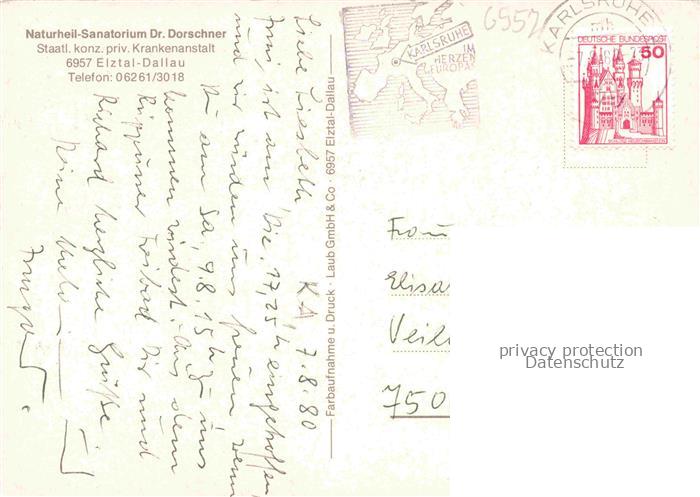 Naturheil-Sanatorium Dr. Dorschner
Staatl. konz. priv. Krankenanstalt
6957 Elztal-Dallau
Telefon: 06261/3018
KARLSRUHE
IM
HERZEN
EUROPAS
6957
KARLSRUHE
DEUTSCHE BUNDESPOST
50
KA, 7.8.80
Liebe Liesbeth
ist am Die. 17,25 h eingetroffen
und wir würden uns freuen wenn
Du am Sa, 9.8. 15 h zu uns
kommen würdest. Aus dem
Rüppurrer Freibad Dir und
Richard herzliche Grüße
Farbaufnahme u. Druck · Laub GmbH & Co · 6957 Elztal-Dallau
Frau
Elisa
Veil
750
privacy protection
Datenschutz